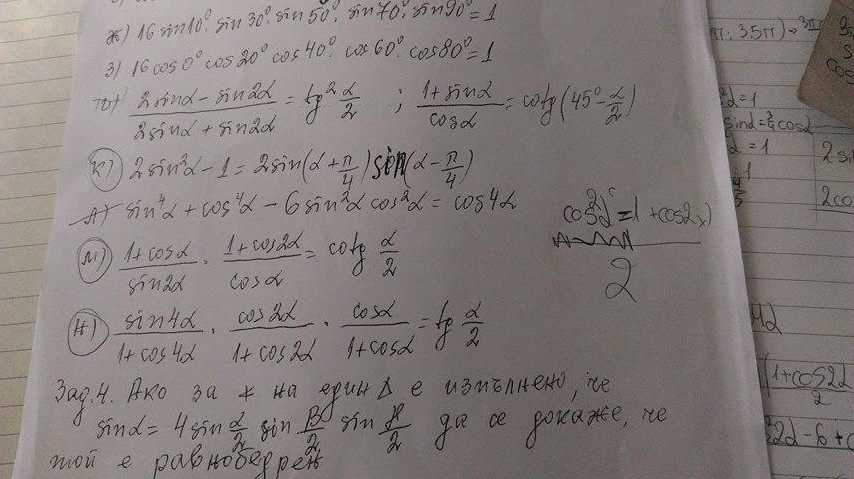 ж) 16 sin10° . sin 30° . sin 50° . sin 70° . sin 90° = 1
з) 16 cos 0° cos 20° cos 40° . cos 60° . cos 80° = 1
(2 sinα - sin2α)/(2 sinα + sin2α) = tg² α/2 ; (1 + sinα)/cosα = cotg(45° - α/2)
к) 2 sin²α - 1 = 2 sin(α + π/4) sin(α - π/4)
л) sin⁴α + cos⁴α - 6 sin²α cos²α = cos4α
м) (1 + cosα)/sin2α . (1 + cos2α)/cosα = cotg α/2
н) sin4α/(1 + cos4α) . cos2α/(1 + cos2α) . cosα/(1 + cosα) = tg α/2
Зад. 4. Ако за ∢ на един Δ е изпълнено, че
sinα = 4 sin α/2 sin β/2 sin γ/2 да се докаже, че
той е равнобедрен
= 1 + cos2x)
2
3,5π) →
cos
²α = 1
sinα = cosα
= 1
2 si
2 cos
(1 + cos2α
2
2α - 6 + c